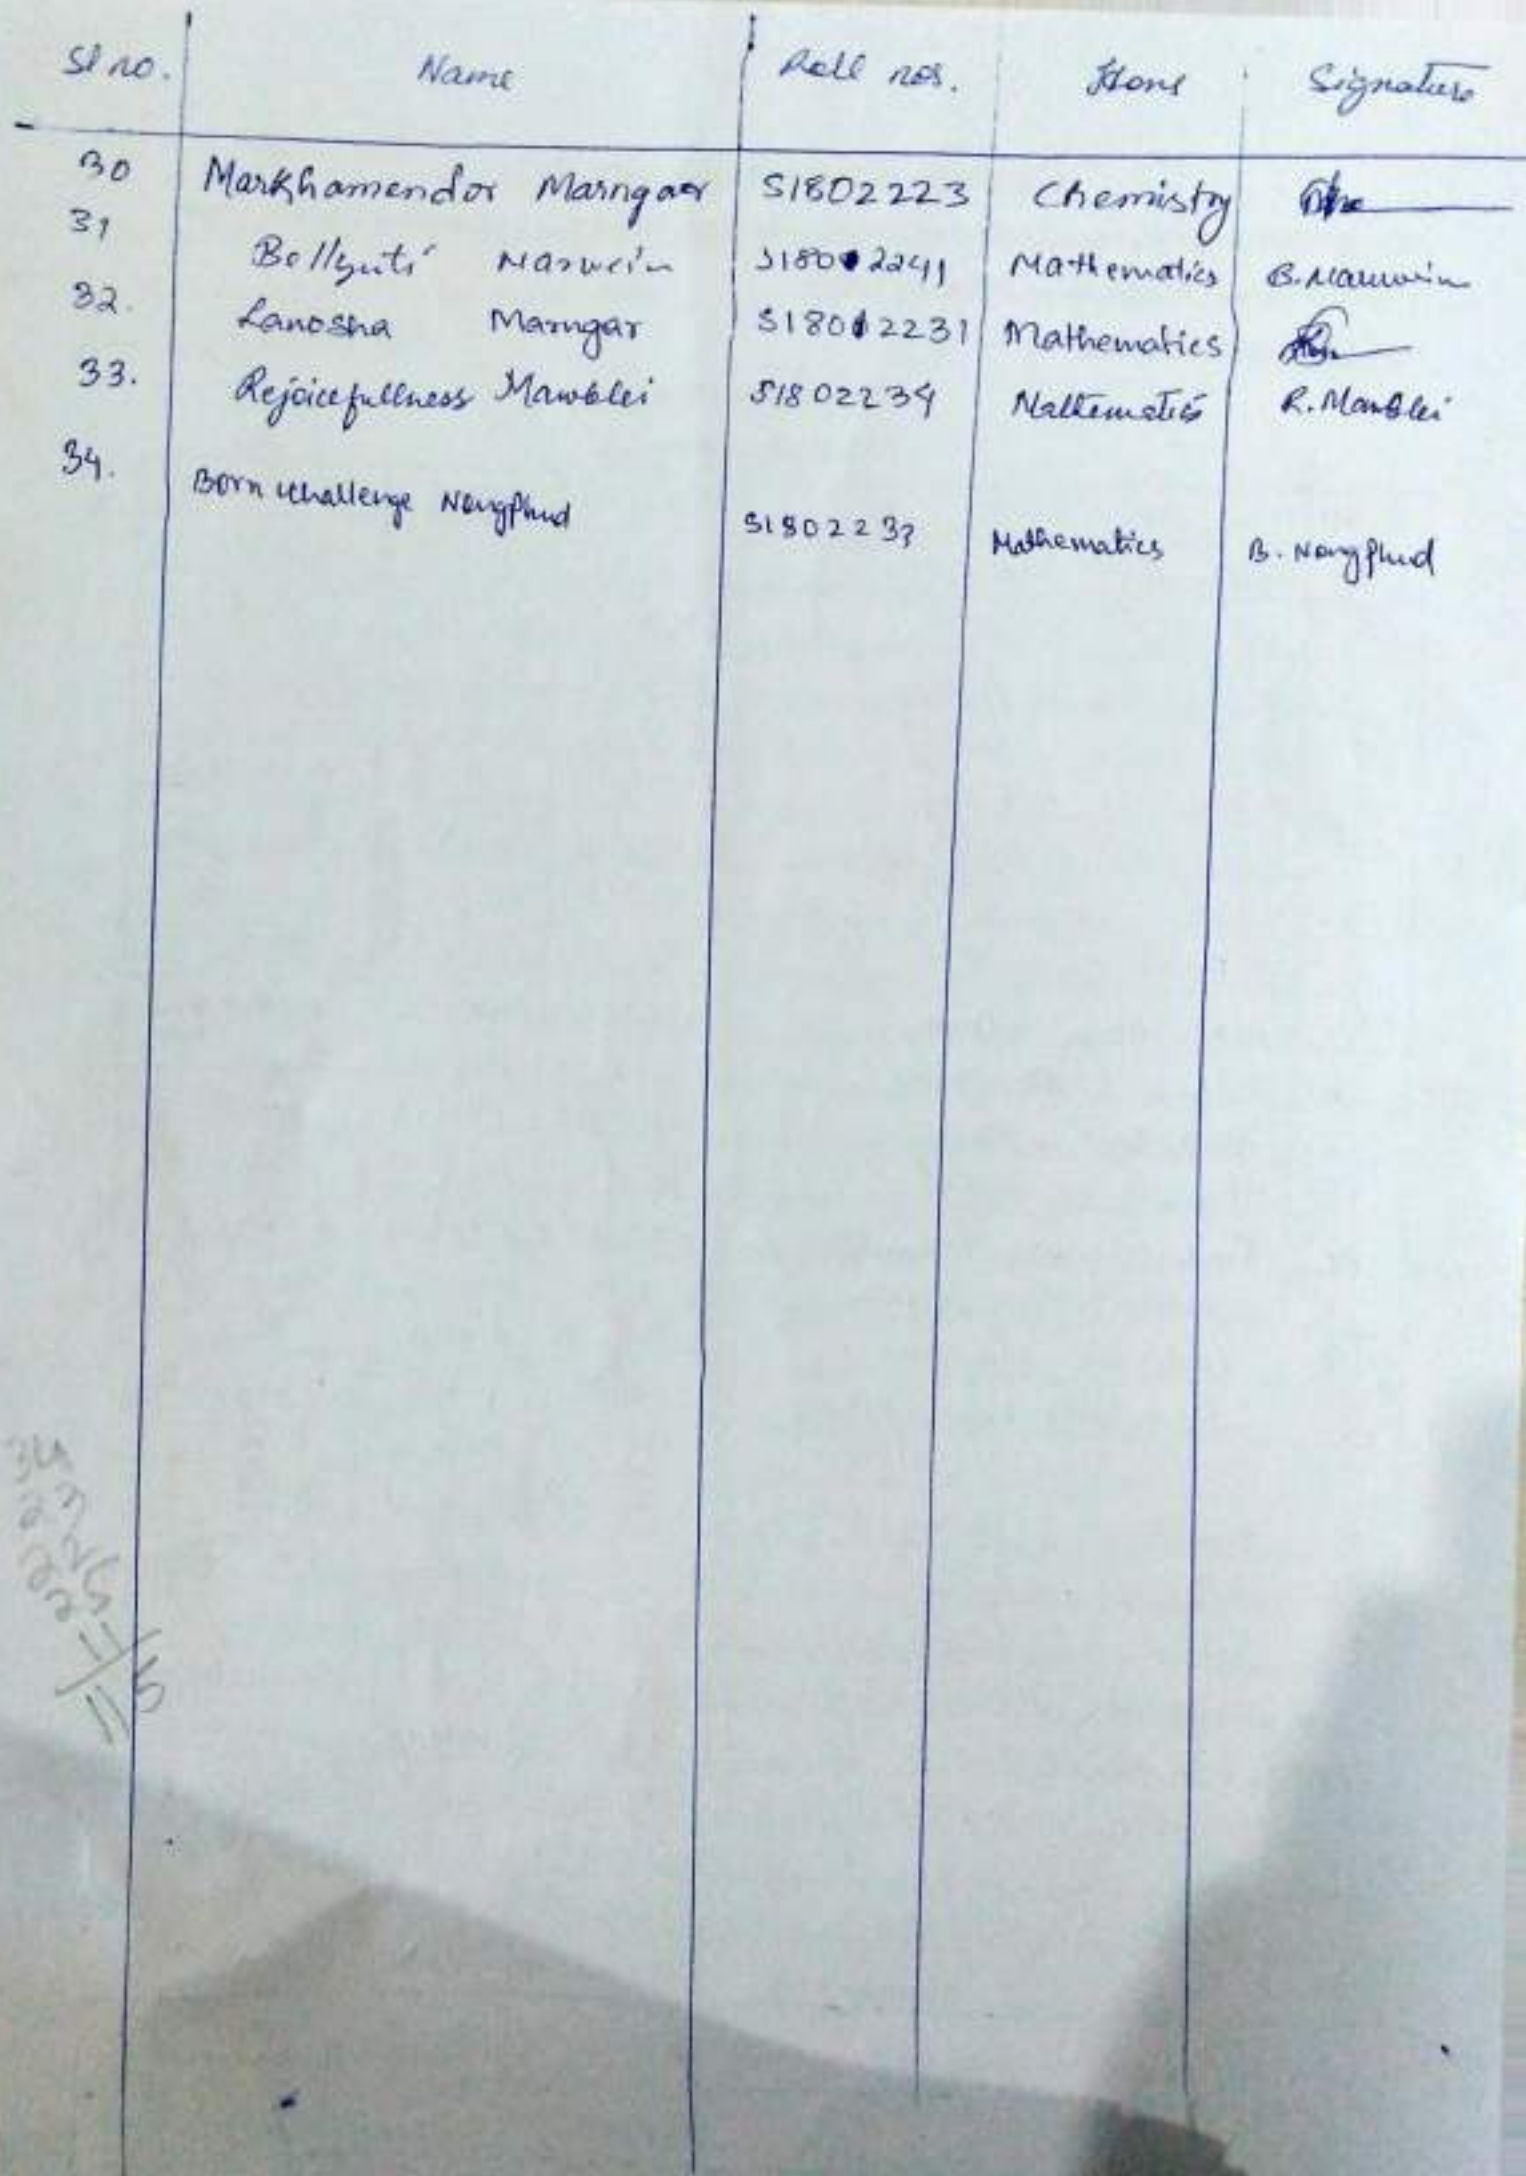 Sl no. Name Roll nos. Hons Signature
30 Markhamendor Marngar S1802223 Chemistry
31 Bollyuti Marwein S1802241 Mathematics B. Marwein
32. Lanosha Marngar S1802231 Mathematics
33. Rejoicefullness Mawblei S1802234 Mathematics R. Mawblei
34. Born challenge Nongphud S1802233 Mathematics B. Nongphud
34
115